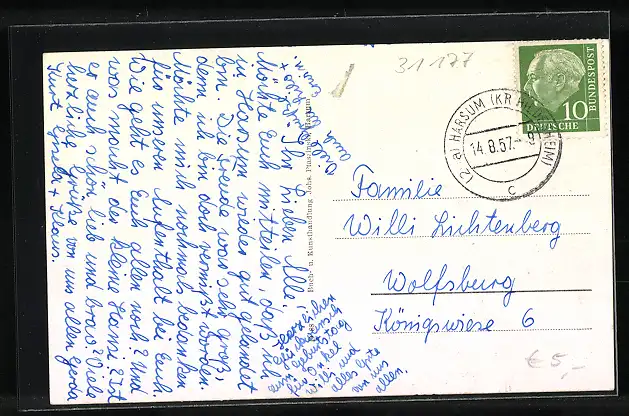 31177
BUNDESPOST
10
DEUTSCHE
(2a) HARSUM (KR HILDESHEIM)
14.8.57.-9
c
Familie
Willi Lichtenberg
Wolfsburg
Königswiese 6
€ 5,-
Buch- u. Kunsthandlung Johs.
Ihr Lieben Alle!
Möchte Euch mitteilen, daß ich
in Harsum wieder gut gelandet
bin. Die Freude war sehr groß,
denn ich bin doch vermißt worden.
Möchte mich nochmals bedanken
für unseren Aufenthalt bei Euch.
Wie geht es Euch allen noch? Und
was macht der kleine Hansi? Ist
er auch schön lieb und brav? Viele
herzliche Grüße von uns allen Gerda
Kurt + Klaus.
Herzlichen
zum Geburtstag
für Onkel
Willi und
alles Gute
von uns
allen.